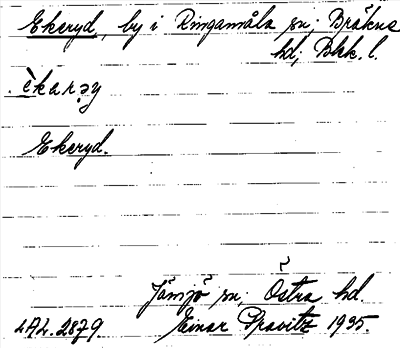 Ekeryd, by i Ringamåla sn; Bräkne
hd, Blek. l.
èkarəy
Ekeryd.
Jämjö sn, Östra hd.
LAL. 2879. Einar Pravitz 1935.